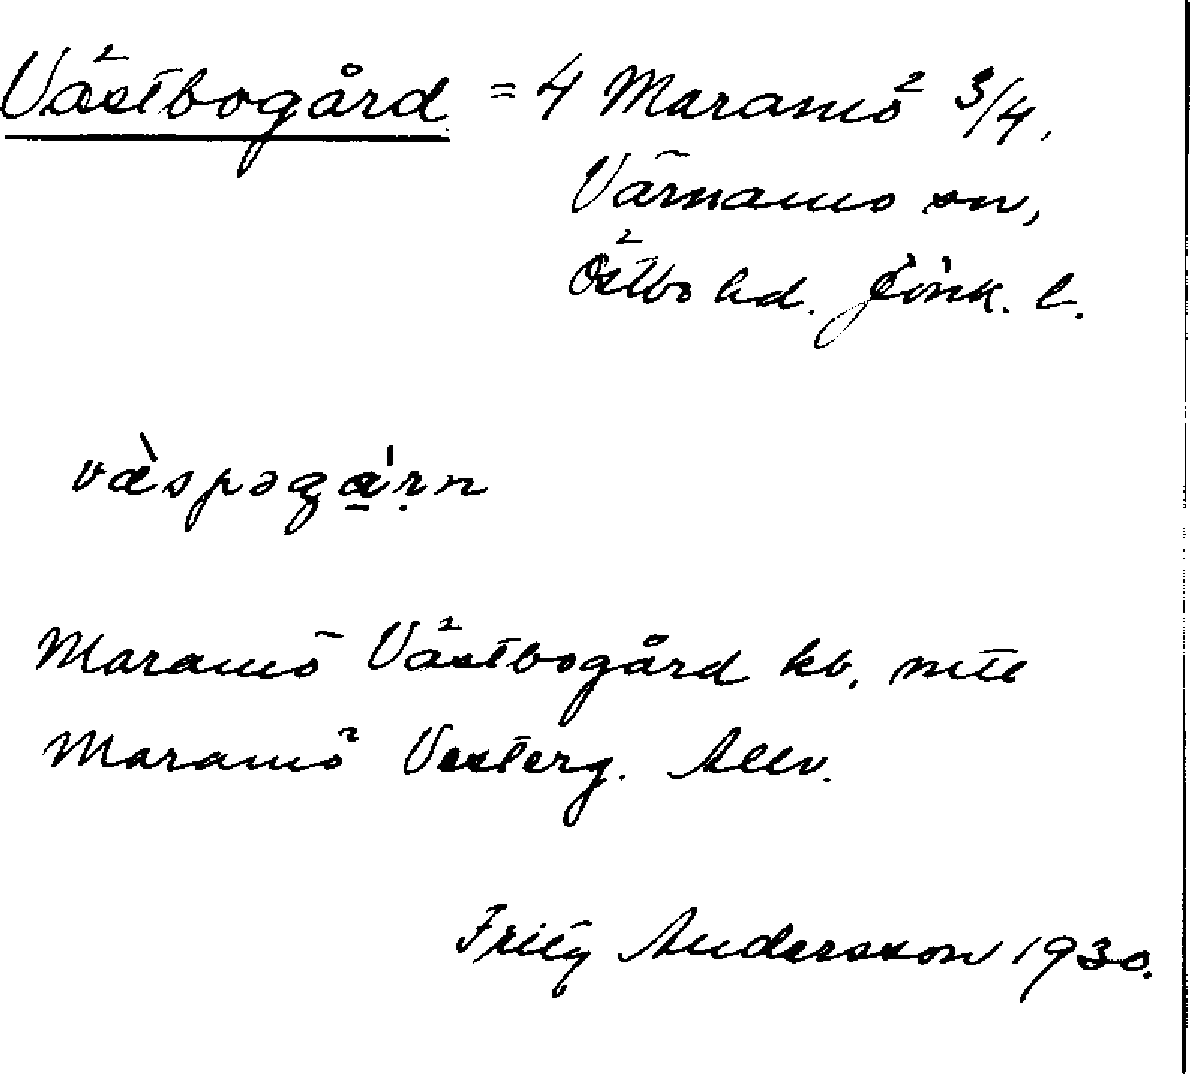 Västbogård = 4 Maramö 3/4,
Värnamo sn,
Östbo hd. Jönk. l.
Maramö Västbogård kb. mtl
Maramö Vesterg. Allv.
Fritz Andersson 1930.